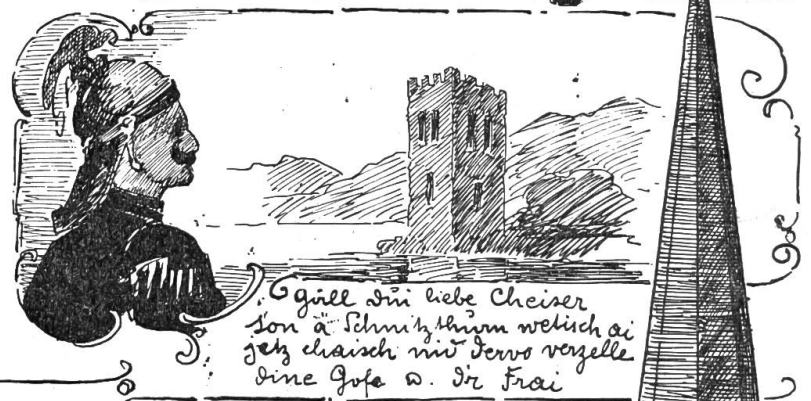 Gäll dui liebe Cheiser
son ä Schnitzthurm wetisch ai
jetz chaisch nid dervo verzelle
dine Gofe u. dr Frai